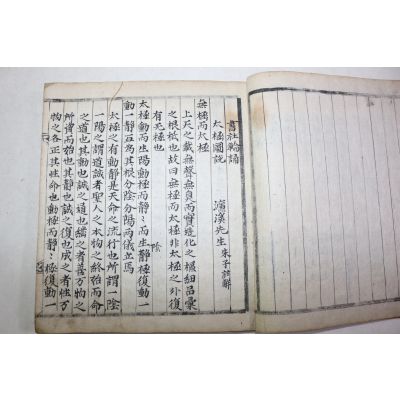 書社輪誦
太極圖說　濂溪先生 朱子註解
無極而太極
上天之載無聲無臭而實造化之樞紐品彙
之根柢也故曰無極而太極非太極之外復
有無極也
太極動而生陽動極而靜靜而生陰靜極復動一
動一靜互為其根分陰分陽兩儀立焉
太極之有動靜是天命之流行也所謂一陰
一陽之謂道誠者聖人之本物之終始而命
之道也其動也誠之通也繼之者善万物之
所資而始也其靜也誠之復也成之者性万
物之各正其性命也動極而靜靜極復動一